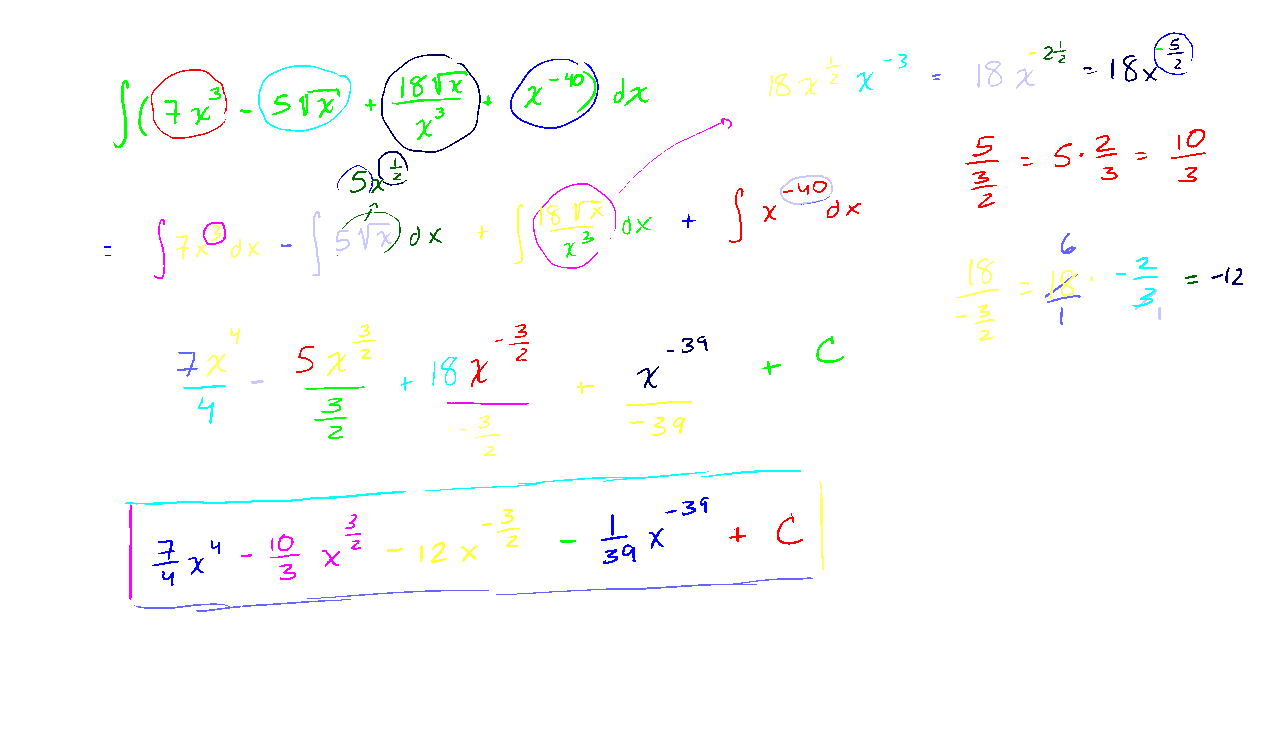 ∫(7x³ - 5√x + 18√x/x³ + x⁻⁴⁰) dx
5x^(1/2)
= ∫7x³dx - ∫5√x dx + ∫18√x/x³ dx + ∫x⁻⁴⁰dx
7x⁴/4 - 5x^(3/2)/(3/2) + 18x^(-3/2)/(-3/2) + x⁻³⁹/-39 + C
7/4 x⁴ - 10/3 x^(3/2) - 12x^(-3/2) - 1/39 x⁻³⁹ + C
18x^(1/2) x⁻³ = 18x^(-2 1/2) = 18x^(-5/2)
5/(3/2) = 5 · 2/3 = 10/3
6
18/(-3/2) = 18/1 · -2/3 = -12
1